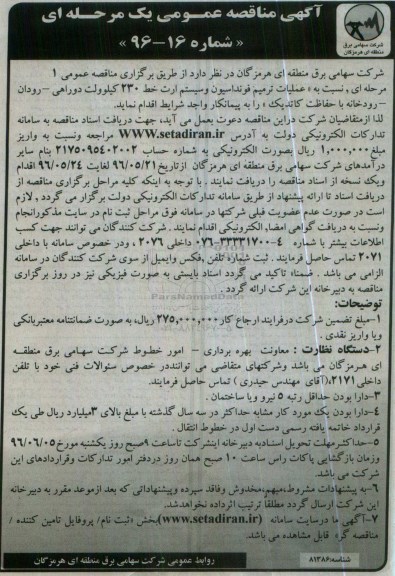 آگهی مناقصه عمومی یک مرحله ای
« شماره ۱۶-۹۶ »
شرکت سهامی برق
منطقه ای هرمزگان
شرکت سهامی برق منطقه ای هرمزگان در نظر دارد از طریق برگزاری مناقصه عمومی ۱
مرحله ای , نسبت به « عملیات ترمیم فونداسیون وسیستم ارت خط ۲۳۰ کیلوولت دوراهی – رودان
– رودخانه با حفاظت کاتدیک » را به پیمانکار واجد شرایط اقدام نماید.
لذا ازمتقاضیان شرکت دراین مناقصه دعوت بعمل می آید، جهت دریافت اسناد مناقصه به سامانه
تدارکات الکترونیکی دولت به آدرس WWW.setadiran.ir مراجعه ونسبت به واریز
مبلغ ۱,۰۰۰,۰۰۰ ریال بصورت الکترونیکی به شماره حساب ۲۱۷۵۰۹۵۴۰۲۰۰۲ بنام سایر
درآمدهای شرکت سهامی برق منطقه ای هرمزگان ازتاریخ ۹۶/۰۵/۲۱ لغایت ۹۶/۰۵/۲۴ اقدام
ویک نسخه از اسناد مناقصه را دریافت نمایند . با توجه به اینکه کلیه مراحل برگزاری مناقصه از
دریافت اسناد تا ارائه پیشنهاد از طریق سامانه تدارکات الکترونیکی دولت برگزار می گردد , لازم
است در صورت عدم عضویت قبلی شرکتها در سامانه فوق مراحل ثبت نام در سایت مذکورانجام
ونسبت به دریافت گواهی امضاء الکترونیکی اقدام نمایند . شرکت کنندگان می توانند جهت کسب
اطلاعات بیشتر با شماره ۴-۰۷۶-۳۳۳۳۱۷۰۰ داخلی ۲۰۷۶ , ودر خصوص سامانه با داخلی
۲۰۷۱ تماس حاصل فرمایند . ثبت شماره تلفن ,فکس وایمیل از سوی شرکت کنندگان در سامانه
الزامی می باشد . ضمناً، تاکید می گردد اسناد بایستی به صورت فیزیکی نیز در روز برگزاری
مناقصه به دبیرخانه این شرکت ارائه گردد .
توضیحات:
۱-مبلغ تضمین شرکت درفرایند ارجاع کار ۲۷۵,۰۰۰,۰۰۰ ریال، به صورت ضمانتنامه معتبربانکی
ویا واریز نقدی .
۲-دستگاه نظارت : معاونت بهره برداری – امور خطوط شرکت سهامی برق منطقه
ای هرمزگان می باشد وشرکتهای متقاضی می توانند در خصوص سئوالات فنی خود با تلفن
داخلی ۲۱۷۱،(آقای مهندس حیدری ) تماس حاصل فرمایند.
۳-دارا بودن حداقل رتبه ۵ نیرو ویا ساختمان .
۴-دارا بودن یک مورد کار مشابه حداکثر در سه سال گذشته با مبلغ بالای ۳میلیارد ریال طی یک
قرارداد خاتمه یافته رسمی دست اول در خطوط انتقال .
۵-حداکثرمهلت تحویل اسنادبه دبیرخانه اینشرکت تاساعت ۹صبح روز یکشنبه مورخ ۹۶/۰۶/۰۵
وزمان بازگشایی پاکات راس ساعت ۱۰ صبح همان روز دردفتر امور تدارکات وقراردادهای این
شرکت می باشد.
۶-به پیشنهادات مشروط،مبهم،مخدوش وفاقد سپرده وپیشنهاداتی که بعد ازموعد مقرر به دبیرخانه
این شرکت ارسال گردد مطلقاً ترتیب اثرداده نخواهدشد.
۷-آگهی ما درسایت سامانه (www.setadiran.ir)بخش «ثبت نام/ پروفایل تامین کننده /
مناقصه گر» قابل مشاهده می باشد.
شناسه:۸۱۳۸۶
روابط عمومی شرکت سهامی برق منطقه ای هرمزگان